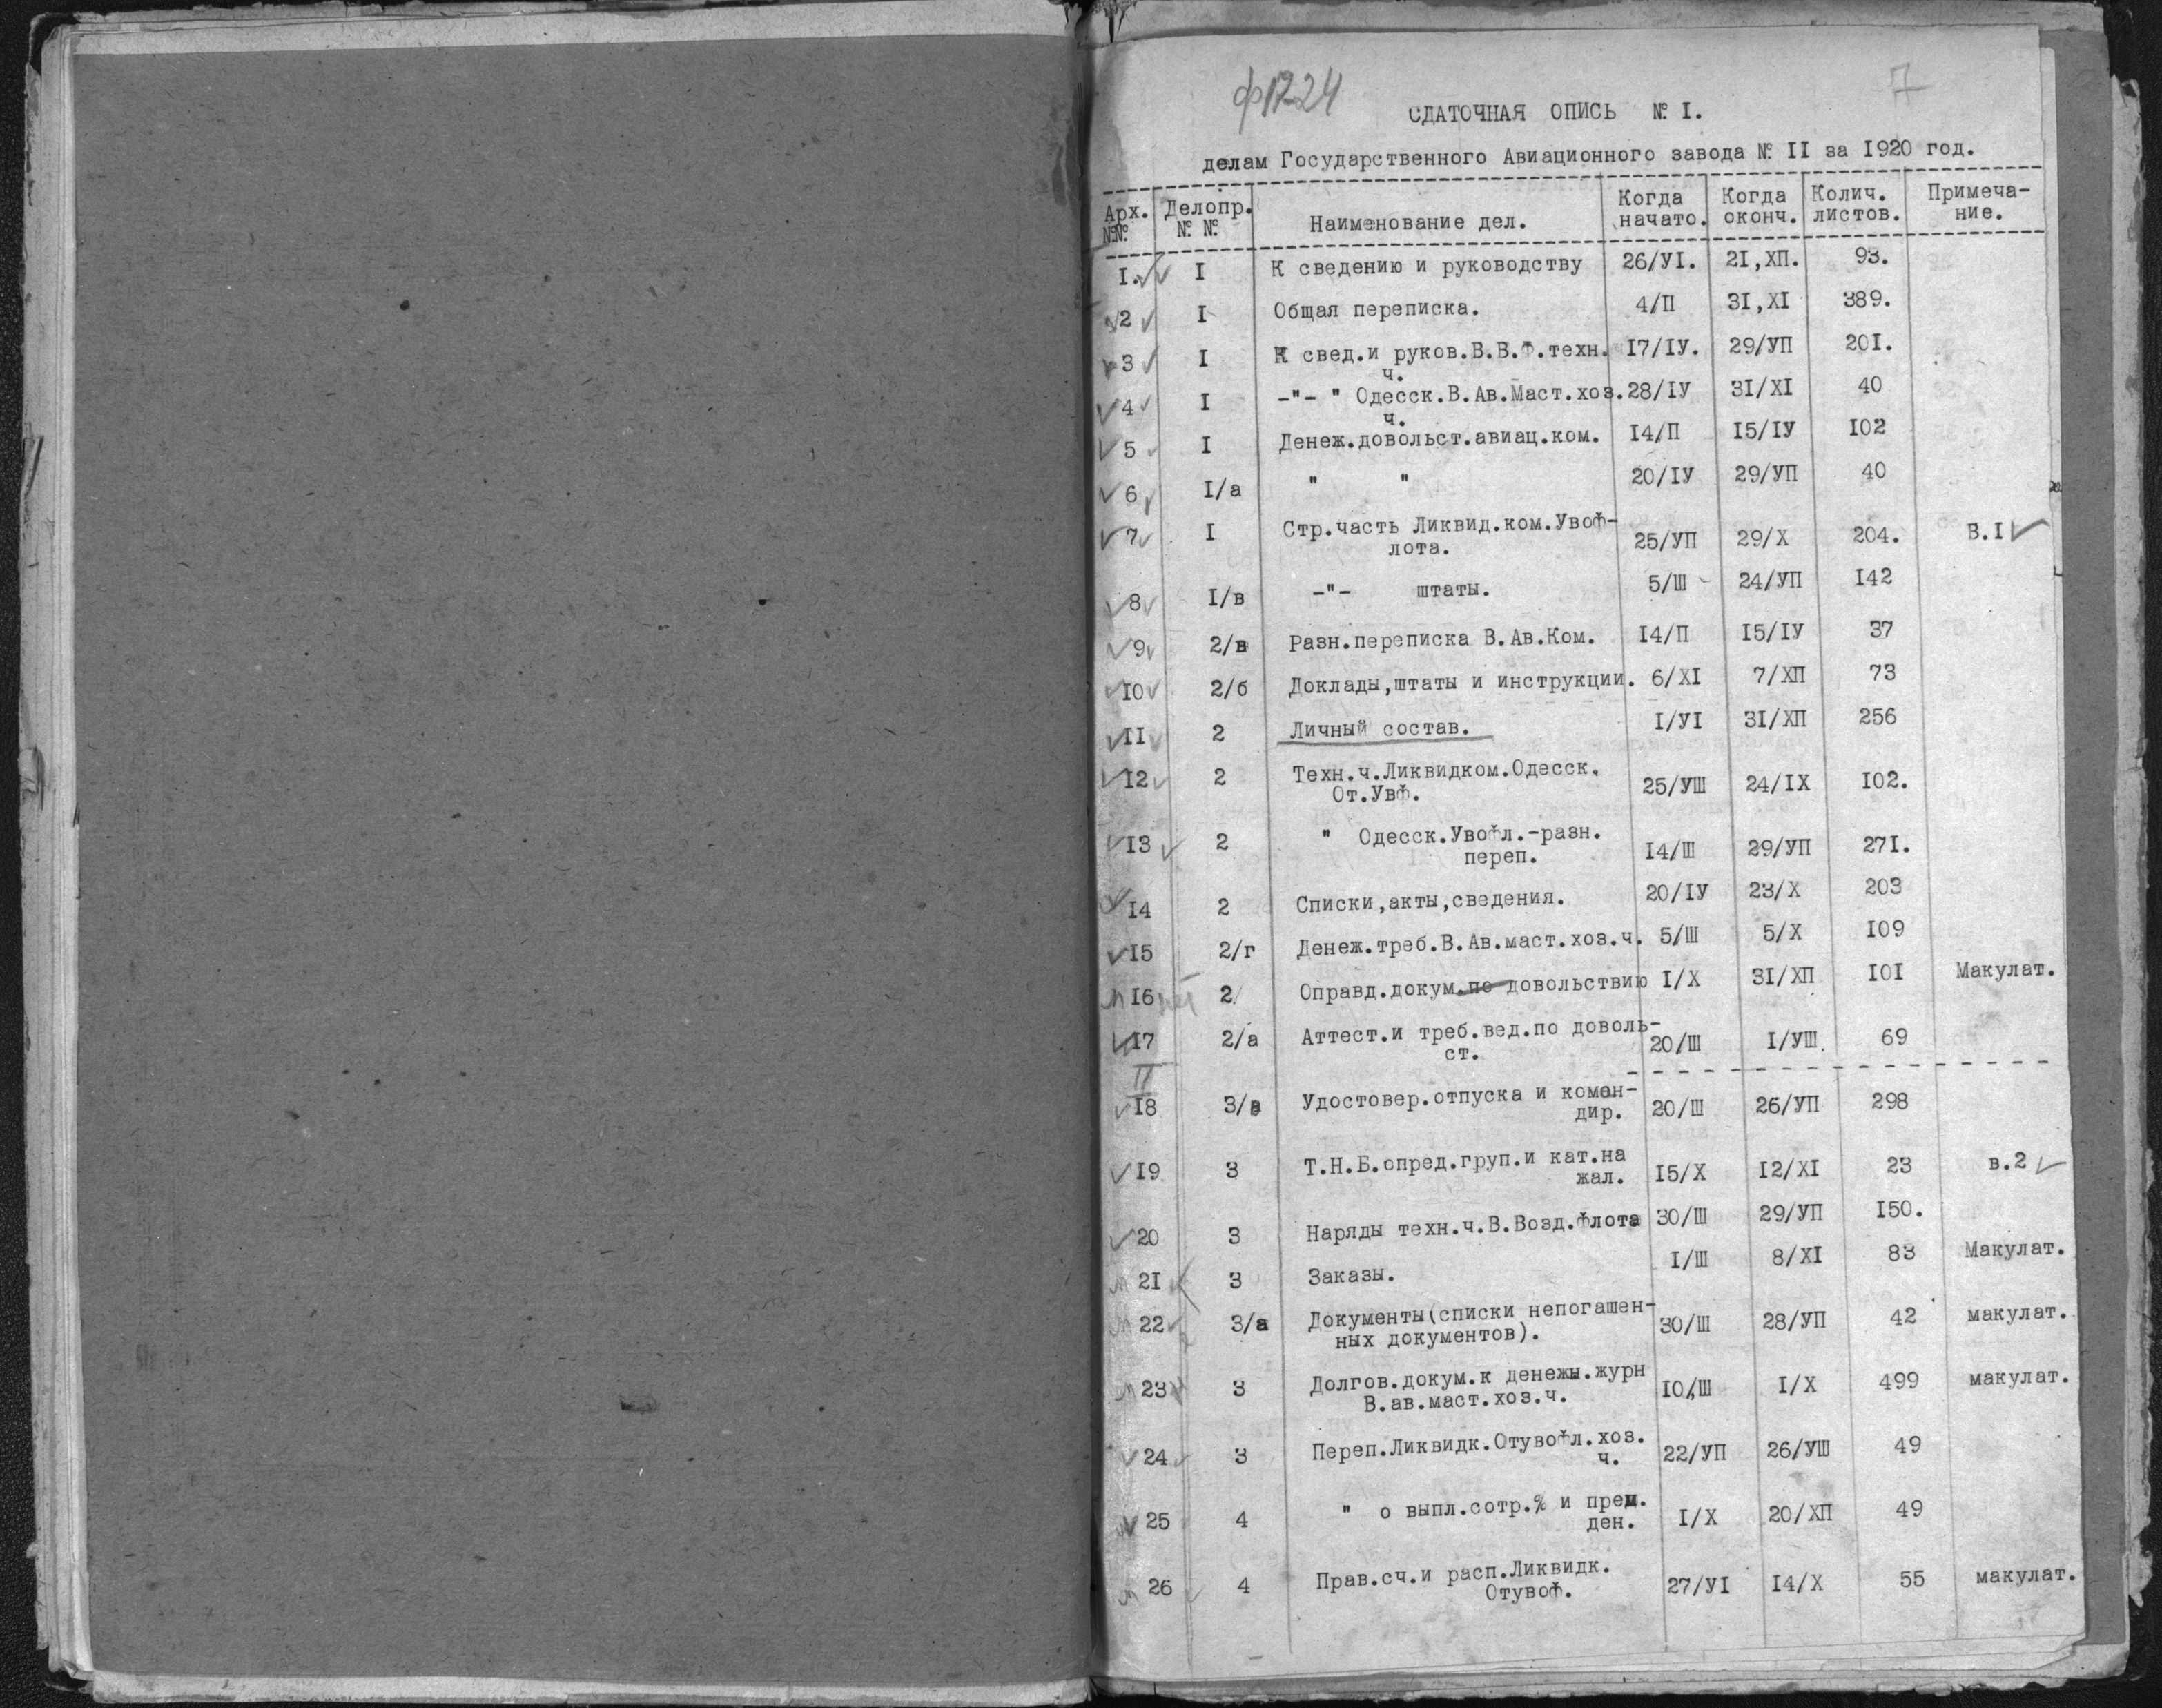 ф 1224
7
СДАТОЧНАЯ ОПИСЬ № I.
делам Государственного Авиационного завода № II за I920 год.
Арх. №№ Делопр. № № Наименование дел. Когда начато. Когда оконч. Колич. листов. Примеча-ние.
I. I К сведению и руководству 26/УI. 2I,ХП. 93.
2 I Общая переписка. 4/П 3I,XI 389.
3 I К свед.и руков.В.В.Ф.техн. I7/IУ. 29/УП 20I.
ч.
4 I -"- " Одесск.В.Ав.Маст.хоз. 28/IУ 3I/XI 40
ч.
5 I Денеж.довольст.авиац.ком. I4/П I5/IУ I02
6 I/а " " 20/IУ 29/УП 40
7 I Стр.часть Ликвид.ком.Увоф-
лота. 25/УП 29/X 204. В.I
8 I/в -"- штаты. 5/Ш 24/УП I42
9 2/в Разн.переписка В.Ав.Ком. I4/П I5/IУ 37
I0 2/б Доклады,штаты и инструкции. 6/XI 7/ХП 73
II 2 Личный состав. I/УI 3I/ХП 256
I2 2 Техн.ч.Ликвидком.Одесск.
От.Увф. 25/УШ 24/IX I02.
I3 2 " Одесск.Увофл.-разн.
переп. I4/Ш 29/УП 27I.
I4 2 Списки,акты,сведения. 20/IУ 23/X 203
I5 2/г Денеж.треб.В.Ав.маст.хоз.ч. 5/Ш 5/X I09
I6 2 Оправд.докум.по довольствию I/X 3I/ХП I0I Макулат.
I7 2/а Аттест.и треб.вед.по доволь-
ст. 20/Ш I/УШ. 69
I8 3/а Удостовер.отпуска и коман-
дир. 20/Ш 26/УП 298
I9 3 Т.Н.Б.опред.груп.и кат.на
жал. I5/X I2/XI 23 в.2
20 3 Наряды техн.ч.В.Возд.Флота 30/Ш 29/УП I50.
2I 3 Заказы. I/Ш 8/XI 83 Макулат.
22 3/а Документы(списки непогашен-
ных документов). 30/Ш 28/УП 42 макулат.
23 3 Долгов.докум.к денежы.журн
В.ав.маст.хоз.ч. I0/Ш I/X 499 макулат.
24 3 Переп.Ликвидк.Отувофл.хоз.
ч. 22/УП 26/УШ 49
25 4 " о выпл.сотр.% и прем.
ден. I/X 20/ХП 49
26 4 Прав.сч.и расп.Ликвидк.
Отувоф. 27/УI I4/X 55 макулат.